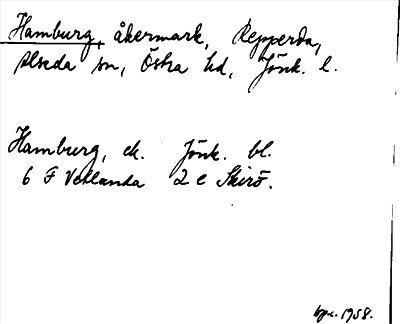 Hamburg, åkermark, Repperda,
Alseda sn, Östra hd, Jönk. l.
Hamburg, ek. Jönk. bl.
6 F Vetlanda 2 e Skirö.
1958.